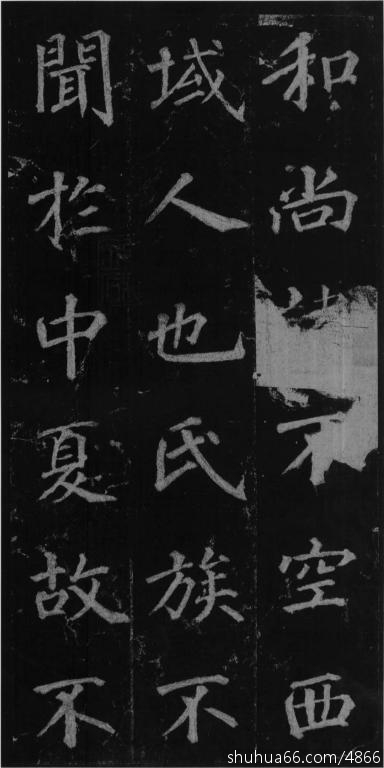 和尚不空西
域人也氏族不
聞於中夏故不
shuhua66.com/4866